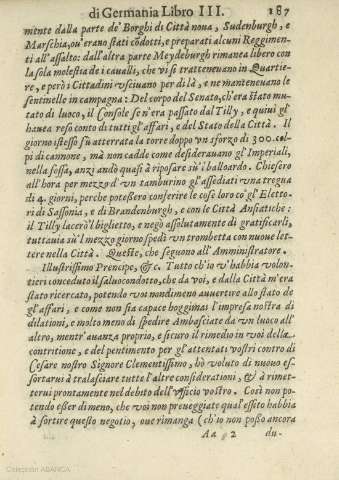 di Germania Libro III. 187
mente dalla parte de' Borghi di Città noua, Sudenburgh, e
Marschia, ou' erano stati cōdotti, e preparati alcuni Reggimen-
ti all'assalto: dall'altra parte Meydeburgh rimanea libero con
la sola molestia de i caualli, che vi se tratteneuano in Quartie-
re, e però i Cittadini vsciuano per di là, e ne manteneuano le
sentinelle in campagna: Del corpo del Senato, ch'era stato mu-
tato di luoco, il Console se n'era passato dal Tilly, e quiui gl'
hauea reso conto di tutti gl'affari, e del Stato della Città. Il
giorno istesso fù atterrata la torre doppo vn sforzo di 300. col-
pi di cannone, mà non cadde come desiderauano gl'Imperiali,
nella fossa, anzi andò quasi à riposare sù'l balloardo. Chiesero
all'hora per mezzo d'vn tamburino gl'assediati vna tregua
di 4. giorni, perche potessero conferire le cose loro co'gl'Eletto-
ri di Sassonia, e di Brandenburgh, e con le Città Ansiatiche:
il Tilly lacerò l'biglietto, e negò assolutamente di gratificarli,
tuttauia sù'l mezzo giorno spedì vn trombetta con nuoue let-
tere nella Città. Queste, che seguono all'Amministratore.
Illustrissimo Prencipe, &c. Tutto ch'io v'habbia volon-
tieri conceduto il saluocondotto, che da voi, e dalla Città m'era
stato ricercato, potendo voi nondimeno auuertire allo stato de
gl'affari, e come non sia capace hoggimai l'impresa nostra di
dilationi, e molto meno di spedire Ambasciate da vn luoco all'
altro, mentr'auanza proprio, e sicuro il rimedio in voi della
contritione, e del pentimento per gl'attentati vostri contro di
Cesare nostro Signore Clementissimo, hò voluto di nuouo es-
sortarui à tralasciare tutte l'altre considerationi, & à rimet-
terui prontamente nel debito dell'vfficio vostro. Così non po-
tendo esser di meno, che voi non preueggiate qual'effeto habbia
à sortire questo negotio, oue rimanga (ch'io non posso ancora
Aa 2 du-
Colección ABANCA